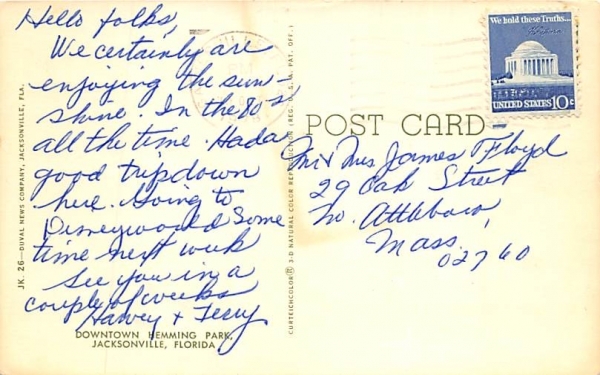 Hello folks,
We certainly are
enjoying the sun-
shine. In the 80's
all the time. Had a
good trip down
here. Going to
Disneyworld some
time next week
See you in a
couple of weeks
Harvey + Terry
DOWNTOWN HEMMING PARK,
JACKSONVILLE, FLORIDA
JK. 26—DUVAL NEWS COMPANY, JACKSONVILLE, FLA.
CURTEICHCOLOR® 3-D NATURAL COLOR REPRODUCTION (REG. U.S.A. PAT. OFF.)
POST CARD
We hold these Truths...
UNITED STATES 10c
Mr & Mrs James Floyd
29 Oak Street
No. Attleboro,
Mass.
02760